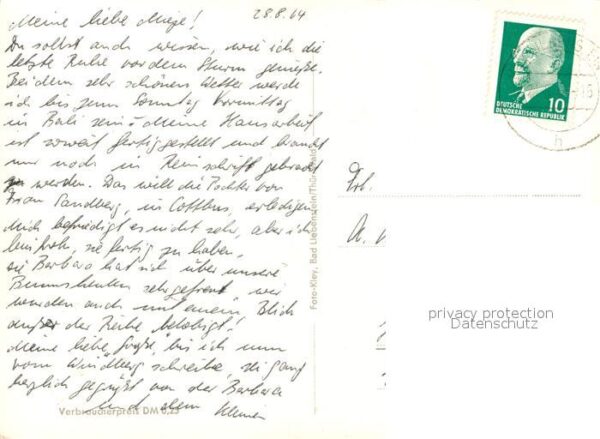 28.8.64
Meine liebe
Du sollst auch wissen, wie ich die
letzte Ruhe vor dem Sturm genieße.
Bei dem sehr schönen Wetter werde
ich bis zum Sonntag Vormittag
in sein. Meine Hausarbeit
ist soweit fertiggestellt und braucht
nur noch in Reinschrift gebracht
zu werden. Das will die Tochter von
Frau Sandberg, in Cottbus, erledigen.
Mich befriedigt es nicht sehr, aber ich
bin froh, sie fertig zu haben.
Barbara hat sich über unsere
sehr gefreut, wir
wurden auch mit einem Blick
außer der Reihe
Meine liebe Große, bis ich nun
vom schreibe, sei ganz
herzlich gegrüßt von der Barbara
und dem Kleinen
Verbraucherpreis DM 0,25
Foto-Kley, Bad Liebenstein/Thür. Wald
DEUTSCHE
DEMOKRATISCHE REPUBLIK
10
h
privacy protection
Datenschutz